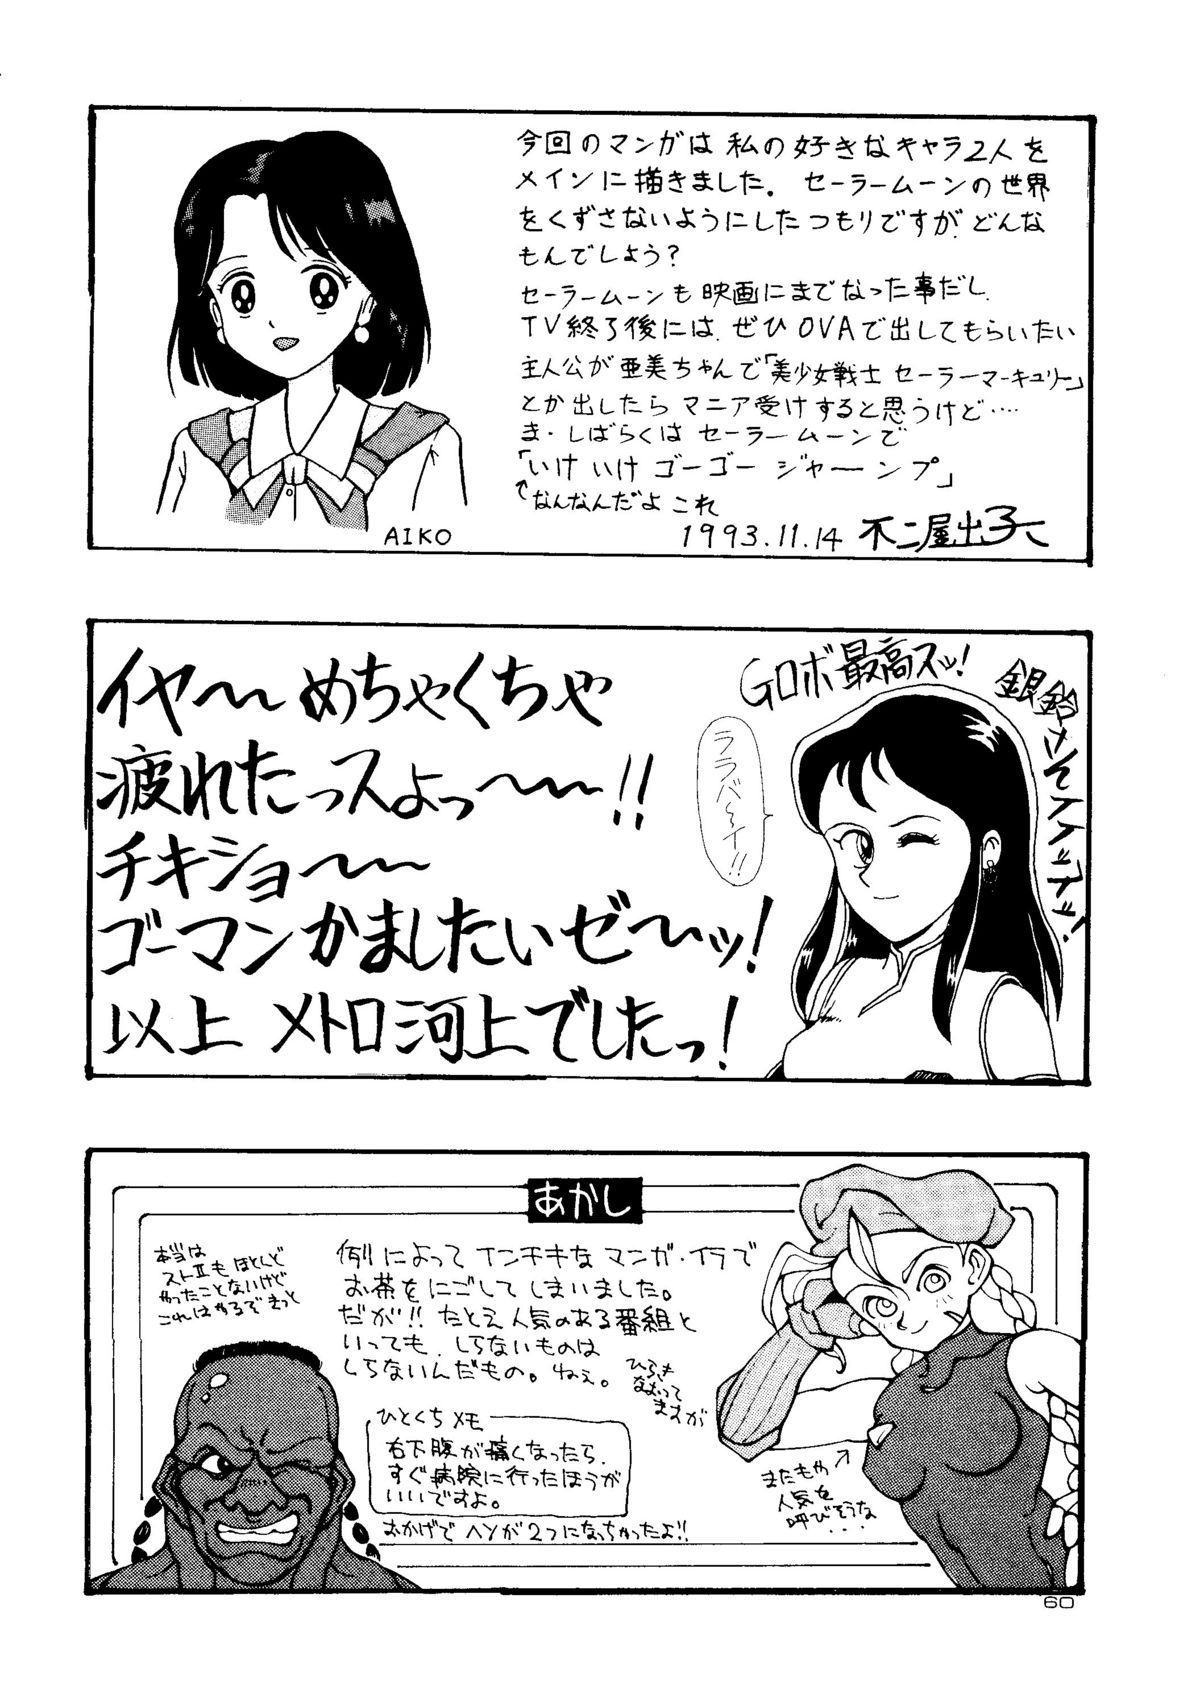 今回のマンガは私の好きなキャラ2人を
メインに描きました。セーラームーンの世界
をくずさないようにしたつもりですが、どんな
もんでしょう?
セーラームーンも映画にまでなった事だし、
TV終了後には、ぜひOVAで出してもらいたい
主人公が亜美ちゃんで「美少女戦士 セーラーマーキュリー」
とか出したらマニア受けすると思うけど‥‥
ま・しばらくはセーラームーンで
「いけ いけ ゴーゴー ジャーンプ」
↑なんなんだよ これ
1993.11.14 不二屋出子
AIKO
Gロボ最高スッ!
銀鈴さんてスイッチッ!
ララバ〜イ!!
イヤ〜〜 めちゃくちゃ
疲れたっスよっ〜〜〜!!
チキショ〜〜
ゴーマンかましたいゼ〜ッ!
以上 メトロ河上でしたっ!
あかし
本当は
ストⅡもほとんど
やったことないけど
これはやるぞきっと
例によってインチキなマンガ・イラで
お茶をにごしてしまいました。
だが!! たとえ人気のある番組と
いっても、しらないものは
しらないんだもの。ねぇ。
ひらき
なおって
ますが
ひとくちメモ
右下腹が痛くなったら、
すぐ病院に行ったほうが
いいですよ。
おかげでヘソが2つになっちゃったよ!!
またもや
人気を
呼びそうな
・・・
60